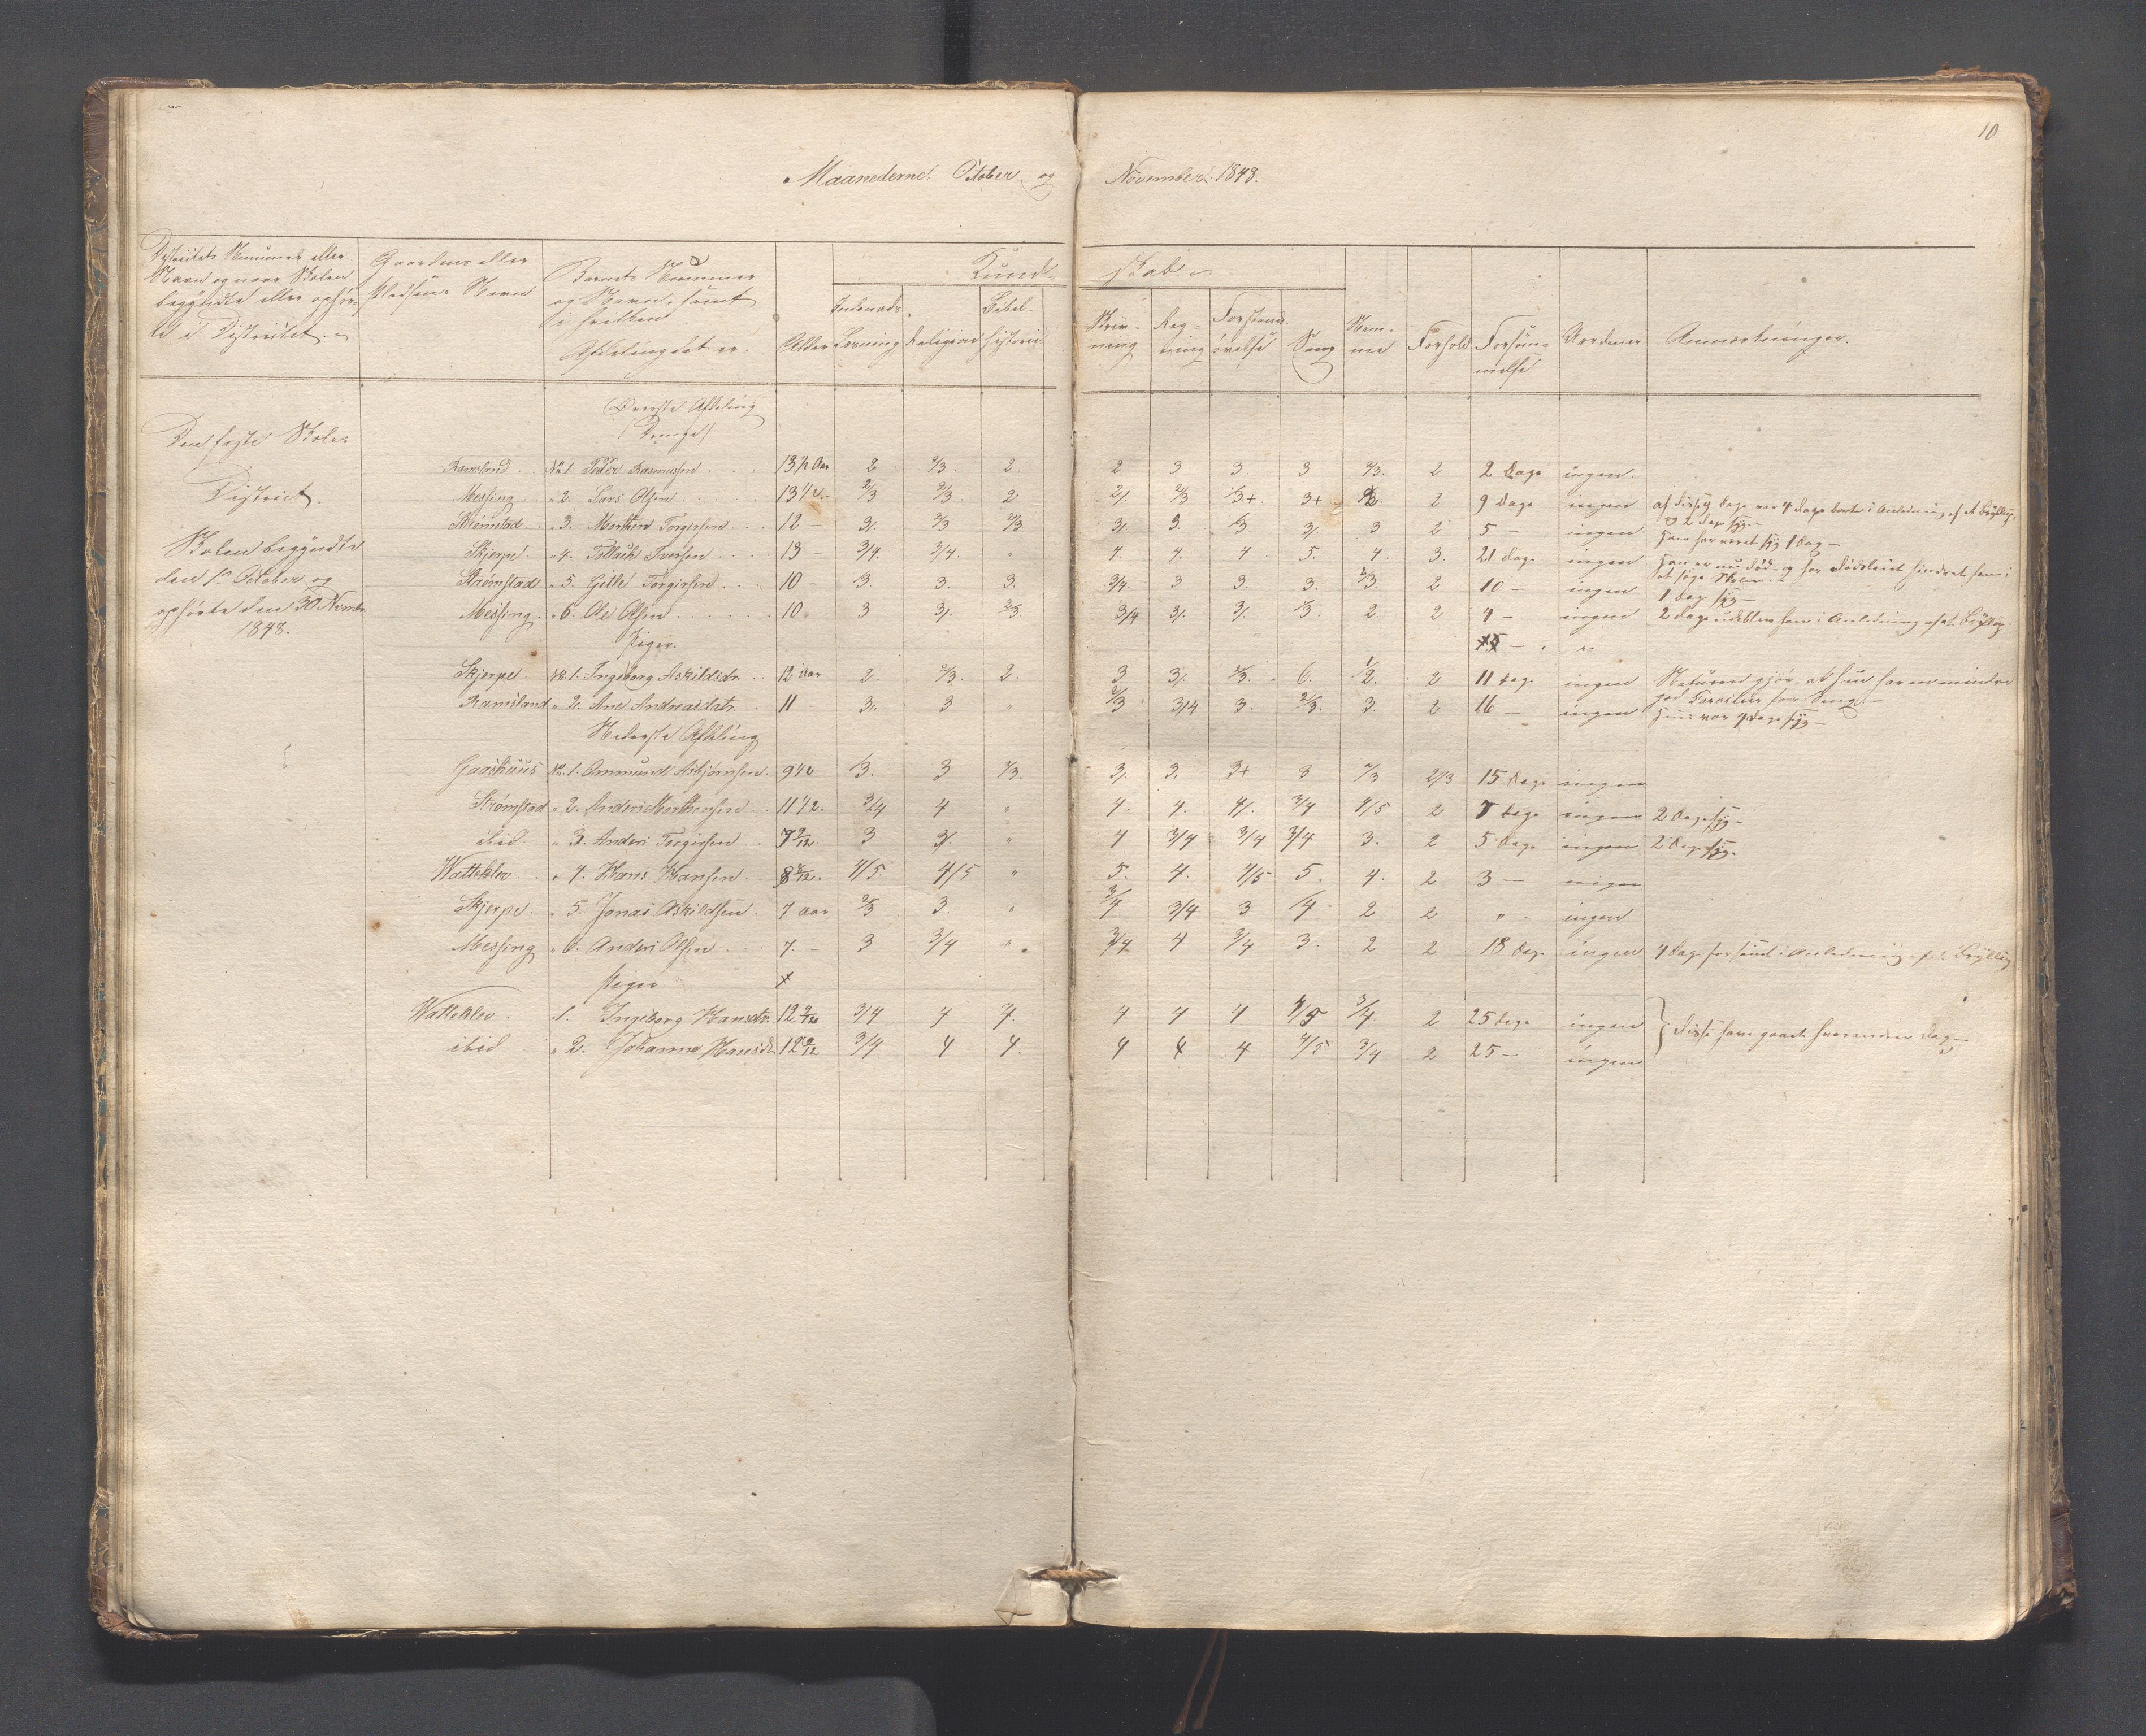 10
Maanederne October og November 1848.
Districtets Nummer eller Navn og naar Skolen begyndte eller ophørte i Districtet.
Gaardens eller Pladsens Navn
Barnets Nummer og Navn, samt i hvilken Afdeling det er.
Alder
Kundskab.
Indenads-Læsning
Religion
Bibelhistorie
Skrivning
Regning
Forstandsøvelse
Sang
Nemme
Forhold
Forsømmelse
Uordener
Anmærkninger.
Den faste Skoles District.
Skolen begyndte den 1. October og ophørte den 30 Novembr 1848.
Øverste Afdeling
Drenge
Ramsland No 1. Peder Rasmussen 13½ Aar 2 2/3 2 2 3 3 3 2/3 2 2 Dage ingen
Messing " 2. Lars Olsen 13½ 2/3 2/3 2 2/. 2/3 3+ 3+ 2 9 Dage ingen af disse 9 Dage var 4 Dage borte i Anledning af et Bryllup,
og 2 Dage syg
Strømstad " 3. Morthen Torgiersen 12 – 3/. 2/3 2/3 3/. 3. 3/. 3 2 5 – ingen Han har været syg 1 Dag –
Skjerpe " 4. Tollack Iversen 13 – 3/4 3/4 " 4. 4. 4 5. 4. 3. 21 Dage ingen Han er nu død og har Dødsleiet hindret ham i
at søge Skolen
Strømstad " 5. Gitle Torgiersen 10 – 3. 3. 3. 3/4. 3 3. 3. 2/3. 2 10 – ingen 1 Dag syg –
Messing " 6. Ole Olsen 10 " 3 3/. 2/3 3/4 3/. 3/. 2. 2 4 – ingen 2 Dage udebleven i Anledning af et Bryllup.
Piger.
Skjerpe No 1. Ingeborg Askildsdr. 12 Aar 2 2/3. 2. 3 3/. 6. ½. 2 11 Dage ingen Naturen gjør, at hun har en mindre
god Facilitet for Sang. –
Ramsland " 2. Ane Andreasdatr. 11 3/. 3 " 2/3 3/4 3. 2/3. 3. 2 16 – ingen Hun var 4 Dage syg –
Nederste Afdeling
Gaashuus No 1. Ommund Asbjørnsen 9½ 3. 3 2/3. 3/. 3. 3+ 3 2/3 2/3 15 Dage ingen
Strømstad " 2. Anders Morthensen 11½. 3/4 4 " 4. 4. 4/. 3/4 4/5 2 7 Dage ingen 2 Dage syg –
ibid. " 3. Anders Torgiersen 7 9/12. 3 3/. " 4 3/4 3/4 3/4 3. 2 5 Dage ingen 2 Dage syg.
Watteklev " 4. Hans Hansen 4/5 4/5 " 5. 4. 4/5 5. 4. 2 3 – ingen
Skjerpe " 5. Jonas Askildsen 7 Aar 2/3 3. " 3/4 3/4 3 2 2 " – ingen
Messing " 6. Anders Olsen 7. – 3 3/4 " 3/4 4 3/4 3. 2 2 18 Dage ingen 4 Dage forsømt i Anledning af et Bryllup
Piger
Watteklev 1. Ingeborg Hansdtr. 3/4 4 4. 4 4 4 4/5 3/4 2 25 Dage ingen
ibid " 2. Johanne Hansdtr 3/4 4 4. 4 4 4 4/5 3/4 2 25 – ingen
Disse have gaaet hveranden Dag –